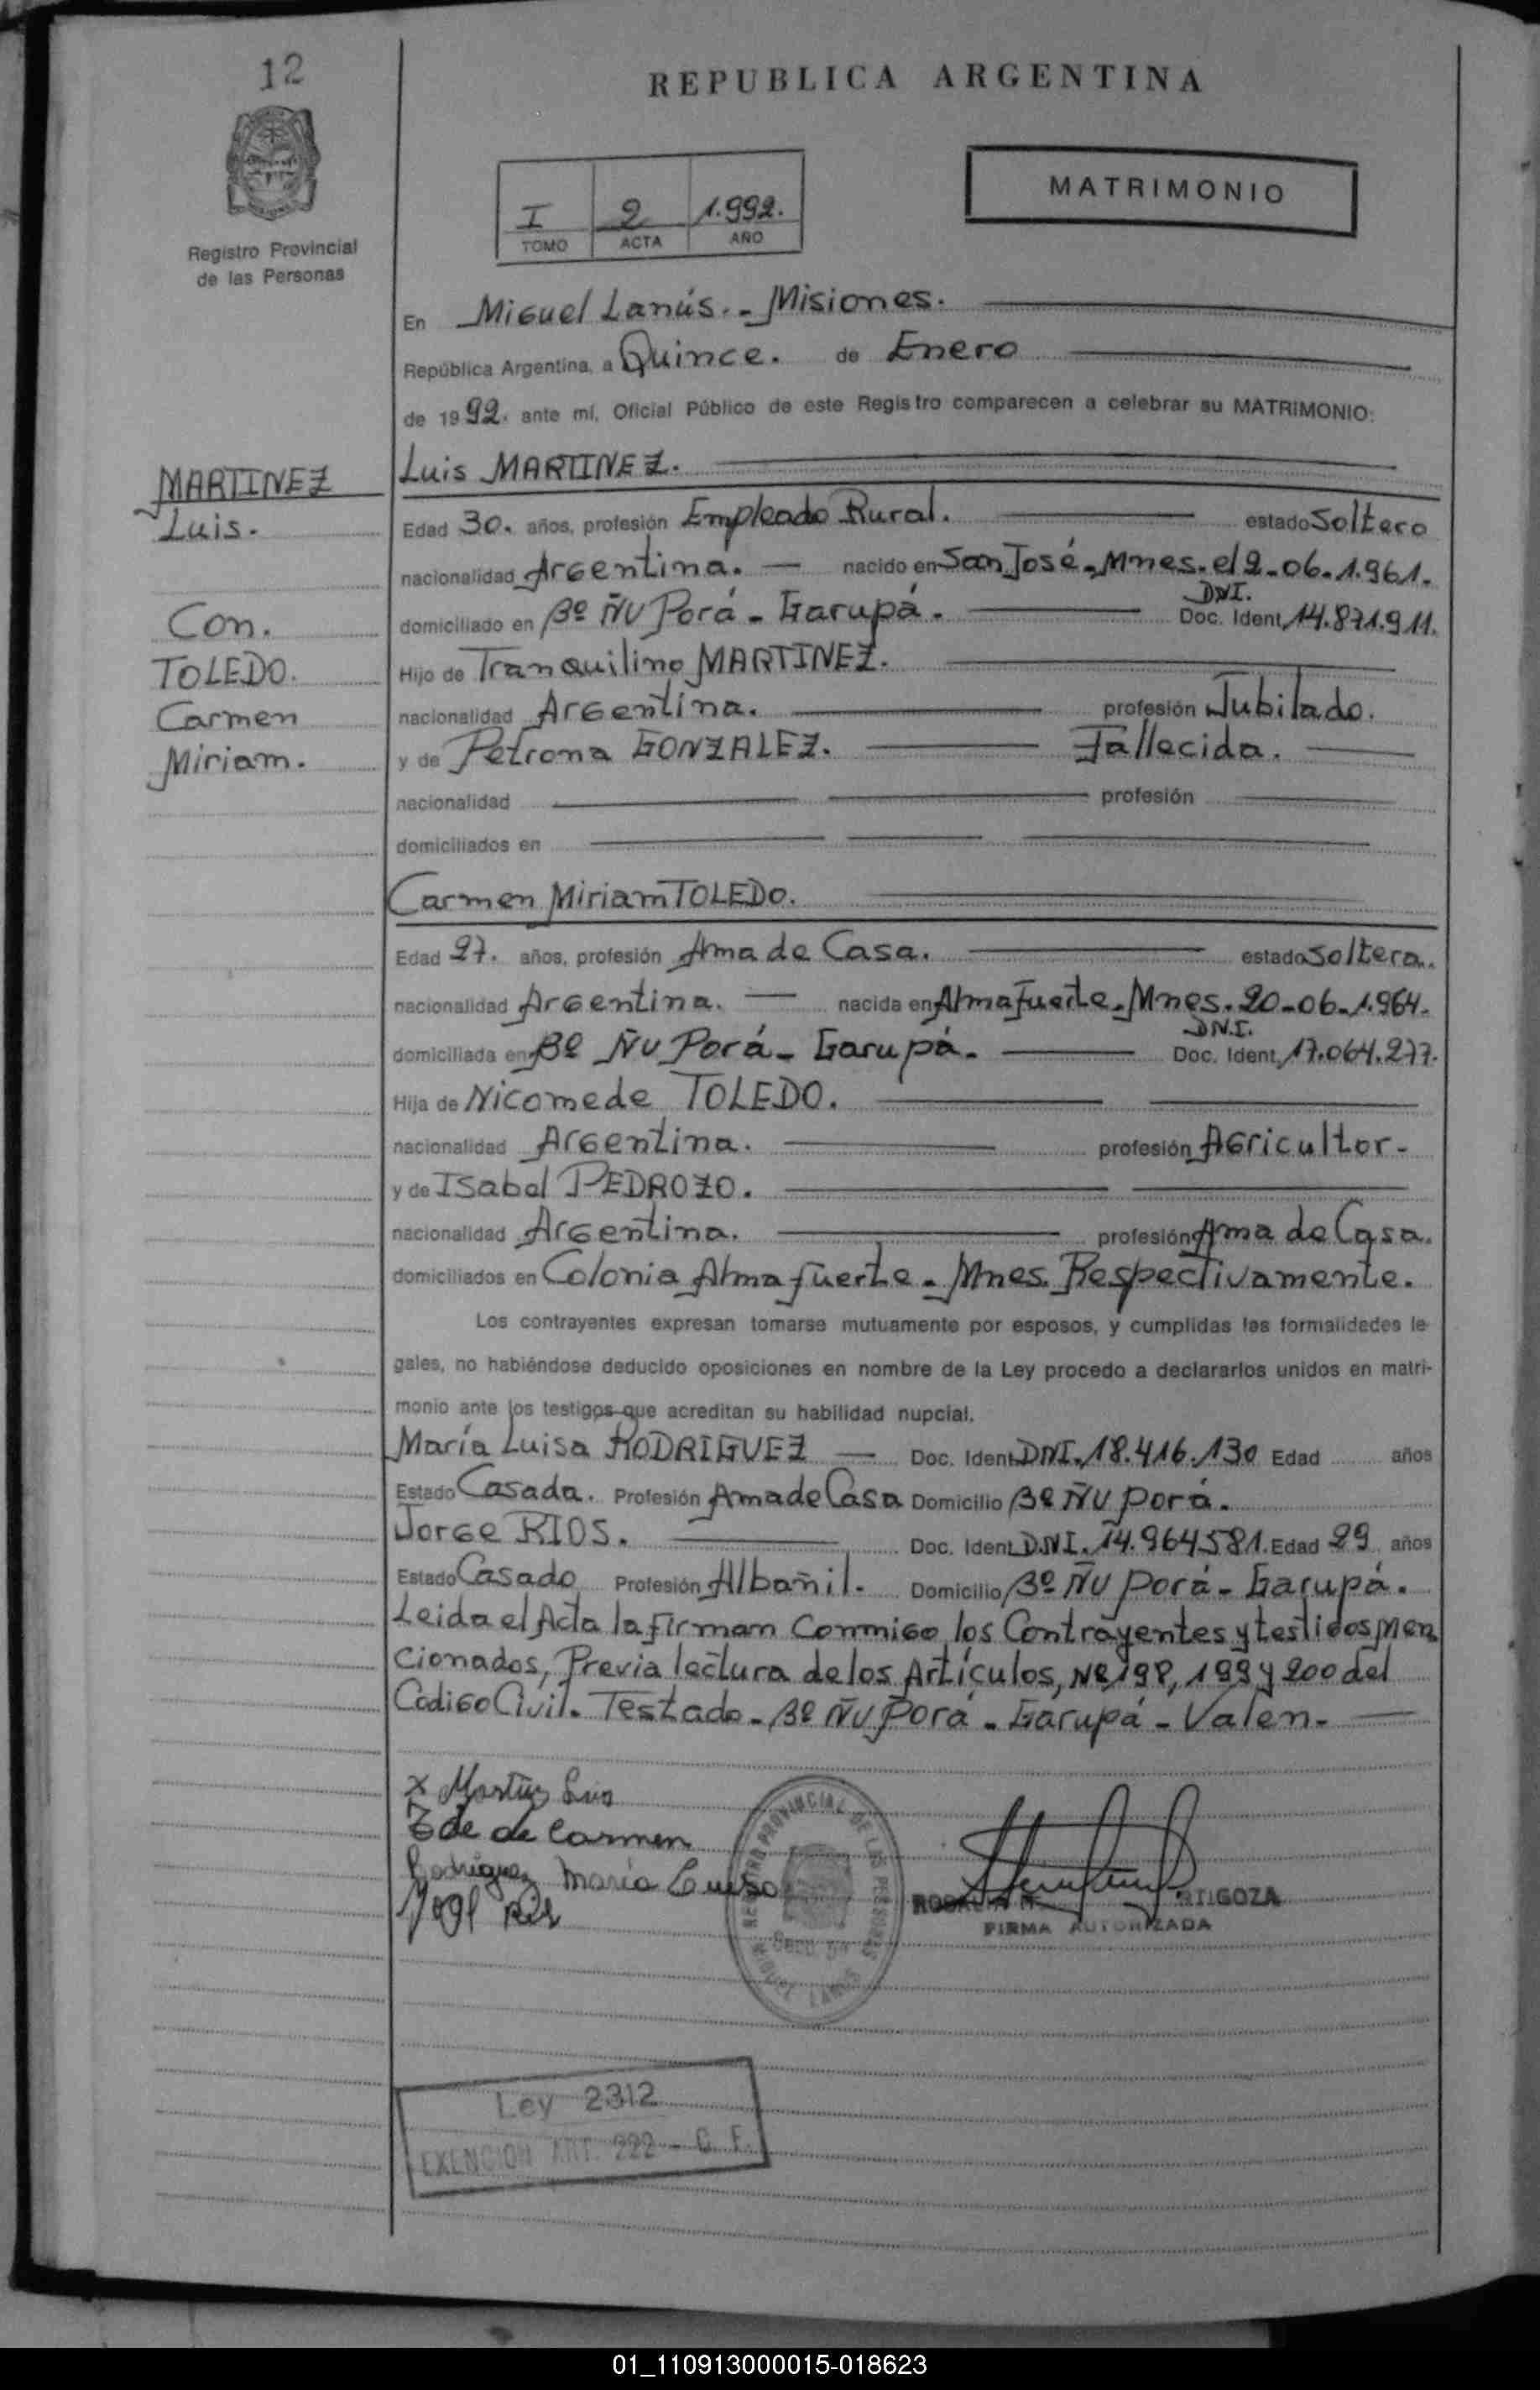 12
REPUBLICA ARGENTINA
MATRIMONIO
I 2 1.992.
TOMO ACTA AÑO
Registro Provincial
de las Personas
En Miguel Lanús. - Misiones.
República Argentina, a Quince. de Enero
de 1992. ante mí, Oficial Público de este Registro comparecen a celebrar su MATRIMONIO:
MARTINEZ
Luis.
Con.
TOLEDO.
Carmen
Miriam.
Luis MARTINEZ.
Edad 30. años, profesión Empleado Rural. estado Soltero
nacionalidad Argentina. nacido en San José - Mnes. el 2-06-1.961.
domiciliado en Bº Ñu Porá - Garupá. Doc. Ident. DNI. 14.871.911.
Hijo de Tranquilino MARTINEZ.
nacionalidad Argentina. profesión Jubilado.
y de Petrona GONZALEZ. Fallecida.
nacionalidad profesión
domiciliados en
Carmen Miriam TOLEDO.
Edad 27. años, profesión Ama de Casa. estado Soltera.
nacionalidad Argentina. nacida en Almafuerte - Mnes. 20-06-1.964.
domiciliada en Bº Ñu Porá - Garupá. Doc. Ident. DNI. 17.064.277.
Hija de Nicomede TOLEDO.
nacionalidad Argentina. profesión Agricultor-
y de Isabel PEDROZO.
nacionalidad Argentina. profesión Ama de Casa.
domiciliados en Colonia Almafuerte - Mnes. Respectivamente.
Los contrayentes expresan tomarse mutuamente por esposos, y cumplidas las formalidades le-
gales, no habiéndose deducido oposiciones en nombre de la Ley procedo a declararlos unidos en matri-
monio ante los testigos que acreditan su habilidad nupcial.
María Luisa RODRIGUEZ Doc. Ident. DNI. 18.416.130 Edad años
Estado Casada. Profesión Ama de Casa Domicilio Bº Ñu Porá.
Jorge RIOS. Doc. Ident. D.N.I. 14.964581. Edad 29 años
Estado Casado Profesión Albañil. Domicilio Bº Ñu Porá - Garupá.
Leida el Acta la Firman Conmigo los Contrayentes y testigos Men
cionados, Previa lectura de los Artículos, Nº 198, 199 y 200 del
Codigo Civil. Testado - Bº Ñu Porá - Garupá - Valen.-
x Martinez Luis
de Carmen
Rodriguez María Luisa
REGISTRO PROVINCIAL DE LAS PERSONAS
FIRMA AUTORIZADA
Ley 2312
EXENCION ART. 222 - C. F.
01_110913000015-018623